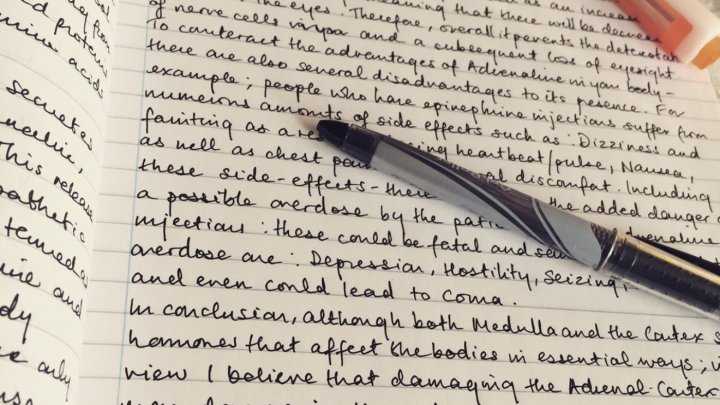 y fey
d proteins
mino acids
secretes
nceline,
This release
pathetic
temed a
ine and
dy
re only
as an increase
meaning that there will be decrea
the eyes. Therefore, overall it prevents the deteriorat
of nerve cells in you and a subsequent loss of eyesight.
To counteract the advantages of Adrenaline in your body -
there are also several disadvantages to its presence. For
example; people who have epinephrine injections suffer from
numerous amounts of side effects such as: Dizziness and
fainting as a res ing heartbeat/pulse, Nausea,
as well as chest pain al discomfort. Including
these side-effects - there the added danger o
a possible overdose by the patie drenaline
injections: these could be fatal and
overdose are: Depression, Hostility, Seizing,
and even could lead to Coma.
In conclusion, although both Medulla and the Cortex s
hormones that affect the bodies in essential ways,
view I believe that damaging the Adrenal-Cortex